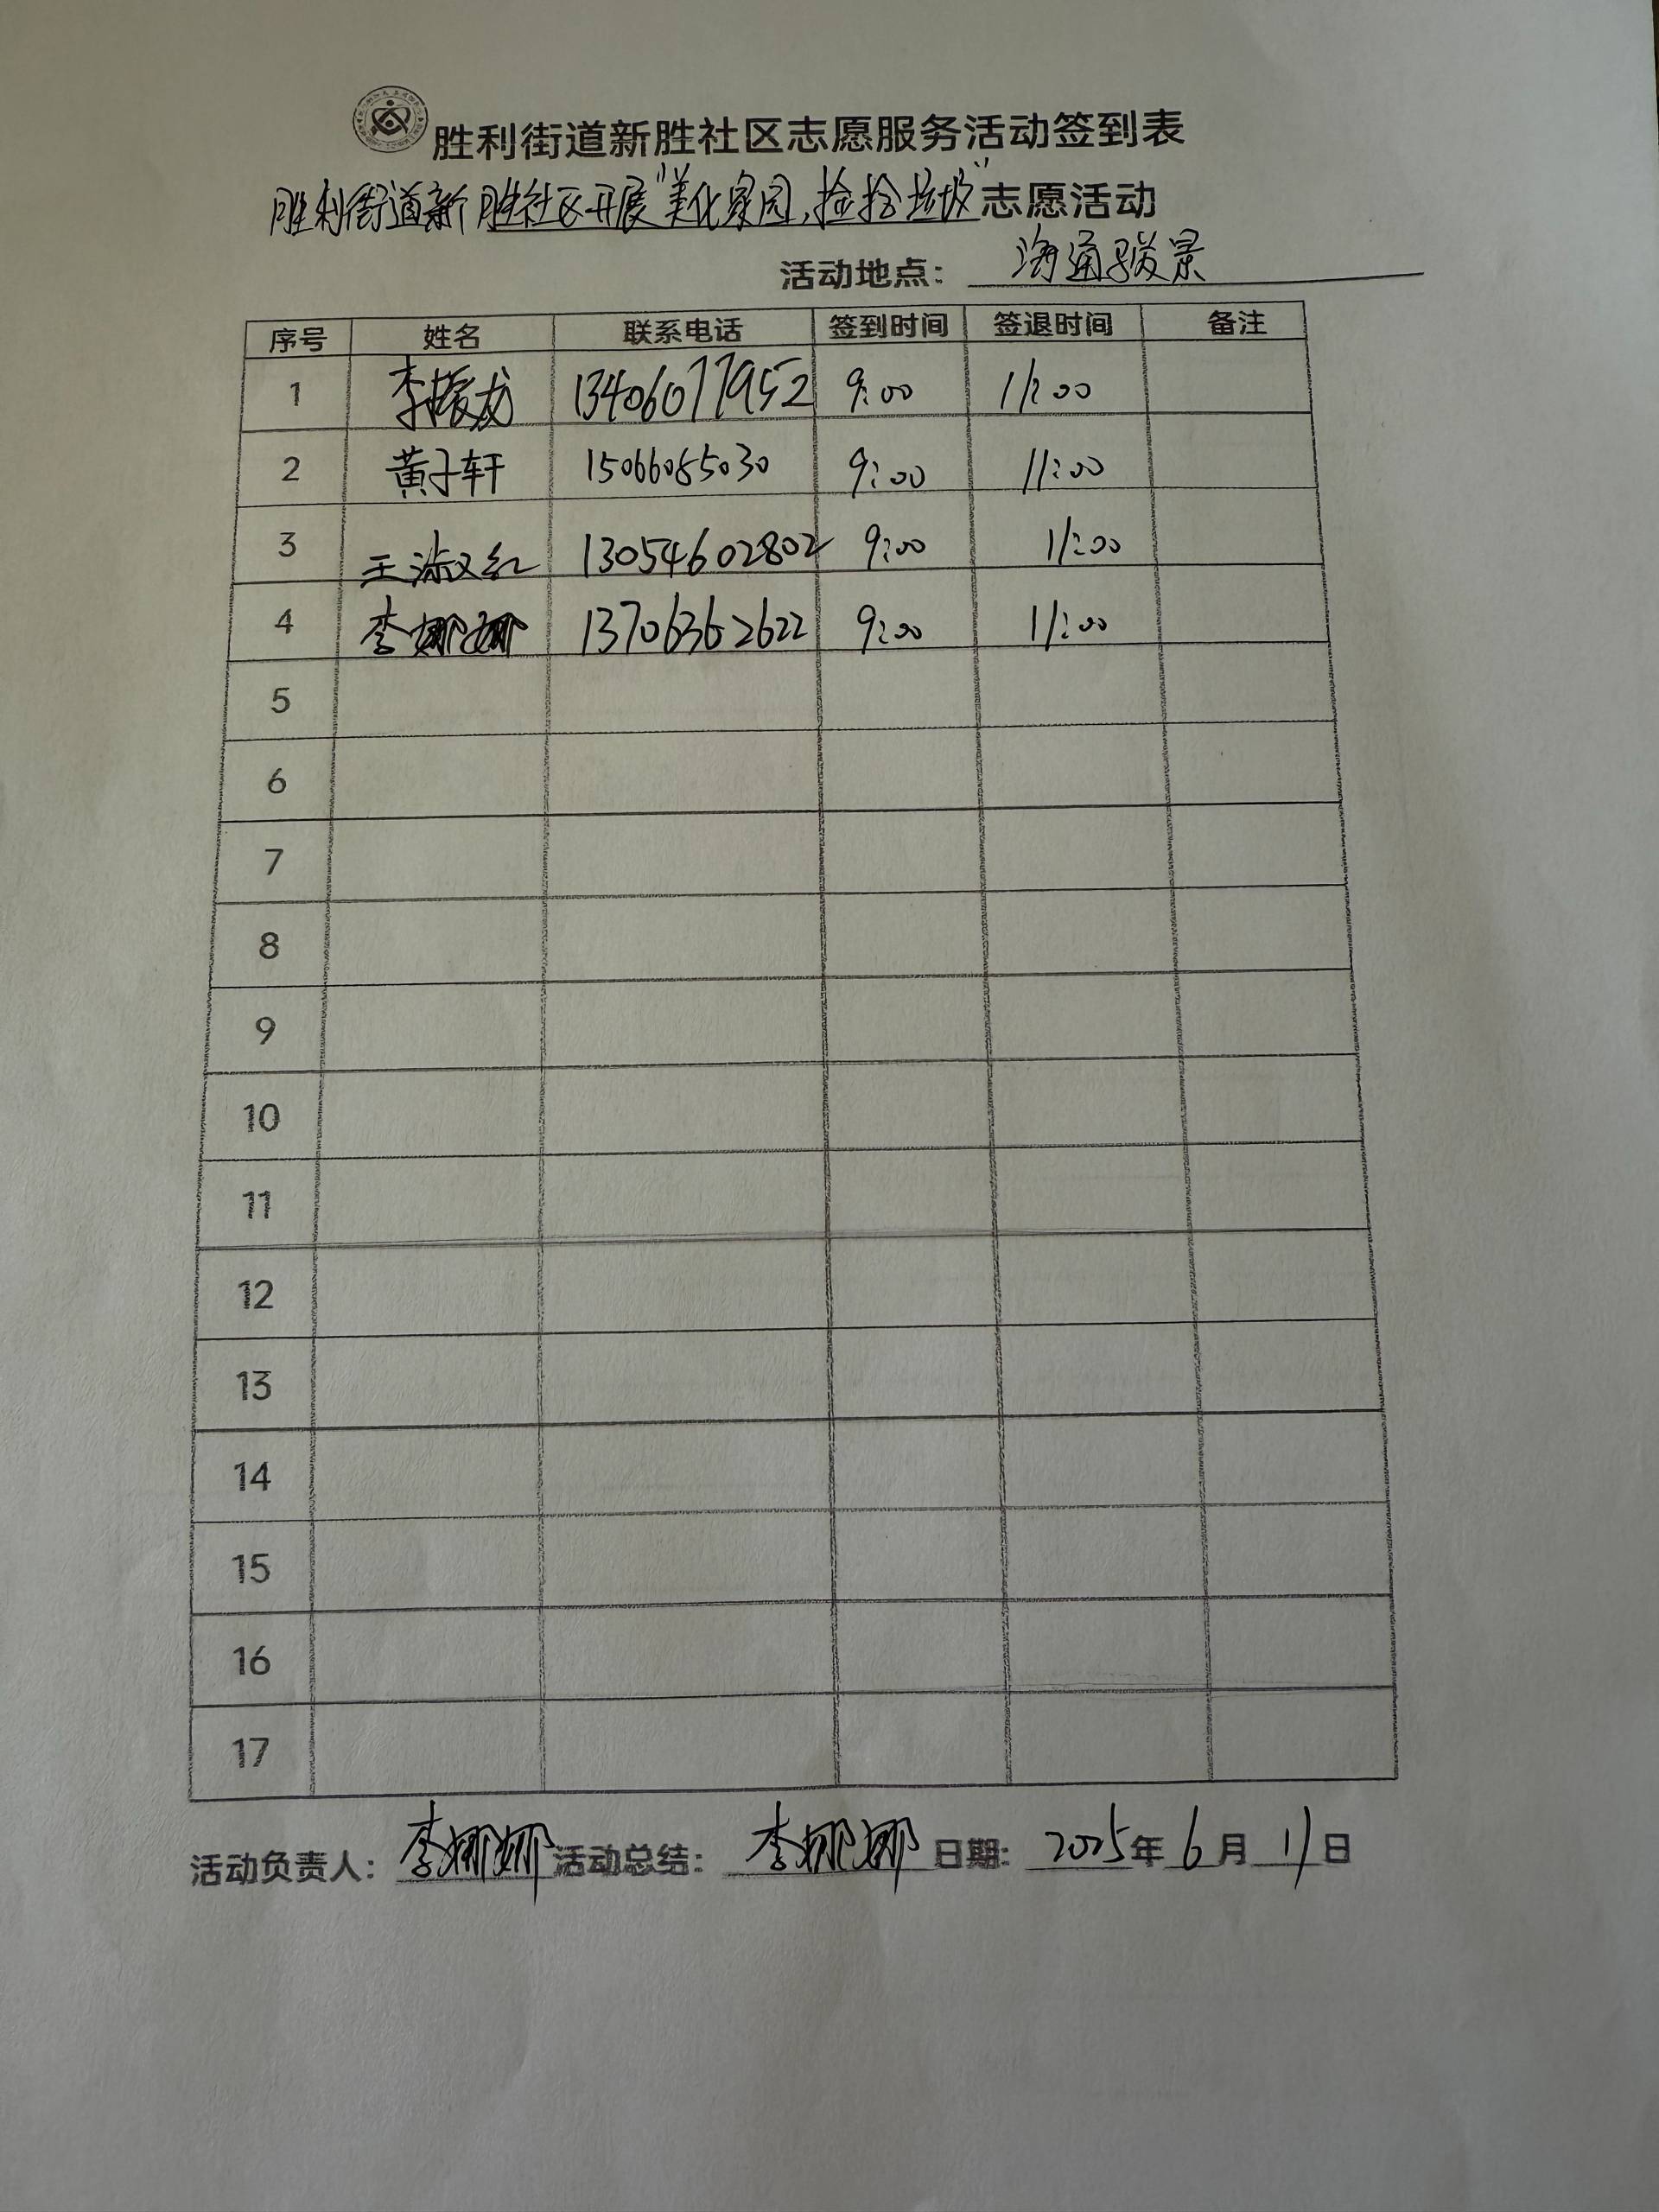 胜利街道新胜社区志愿服务活动签到表
胜利街道新胜社区开展"美化家园,捡拾垃圾"志愿活动
活动地点: 海通骏景
序号 姓名 联系电话 签到时间 签退时间 备注
1 李振龙 13406077952 9:00 11:00
2 黄子轩 15066085030 9:00 11:00
3 王淑红 13054602802 9:00 11:00
4 李娜娜 13706362622 9:00 11:00
5
6
7
8
9
10
11
12
13
14
15
16
17
活动负责人: 李娜娜 活动总结: 李娜娜 日期: 2025年6月11日